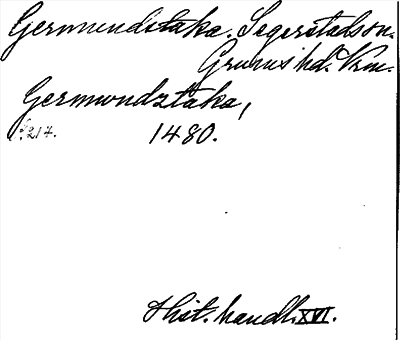 Germundstaka. Segerstadson.
Grums hd. Vrm.
Germwndztaka,
s. 217. 1480.
Hist. handl. XVI.